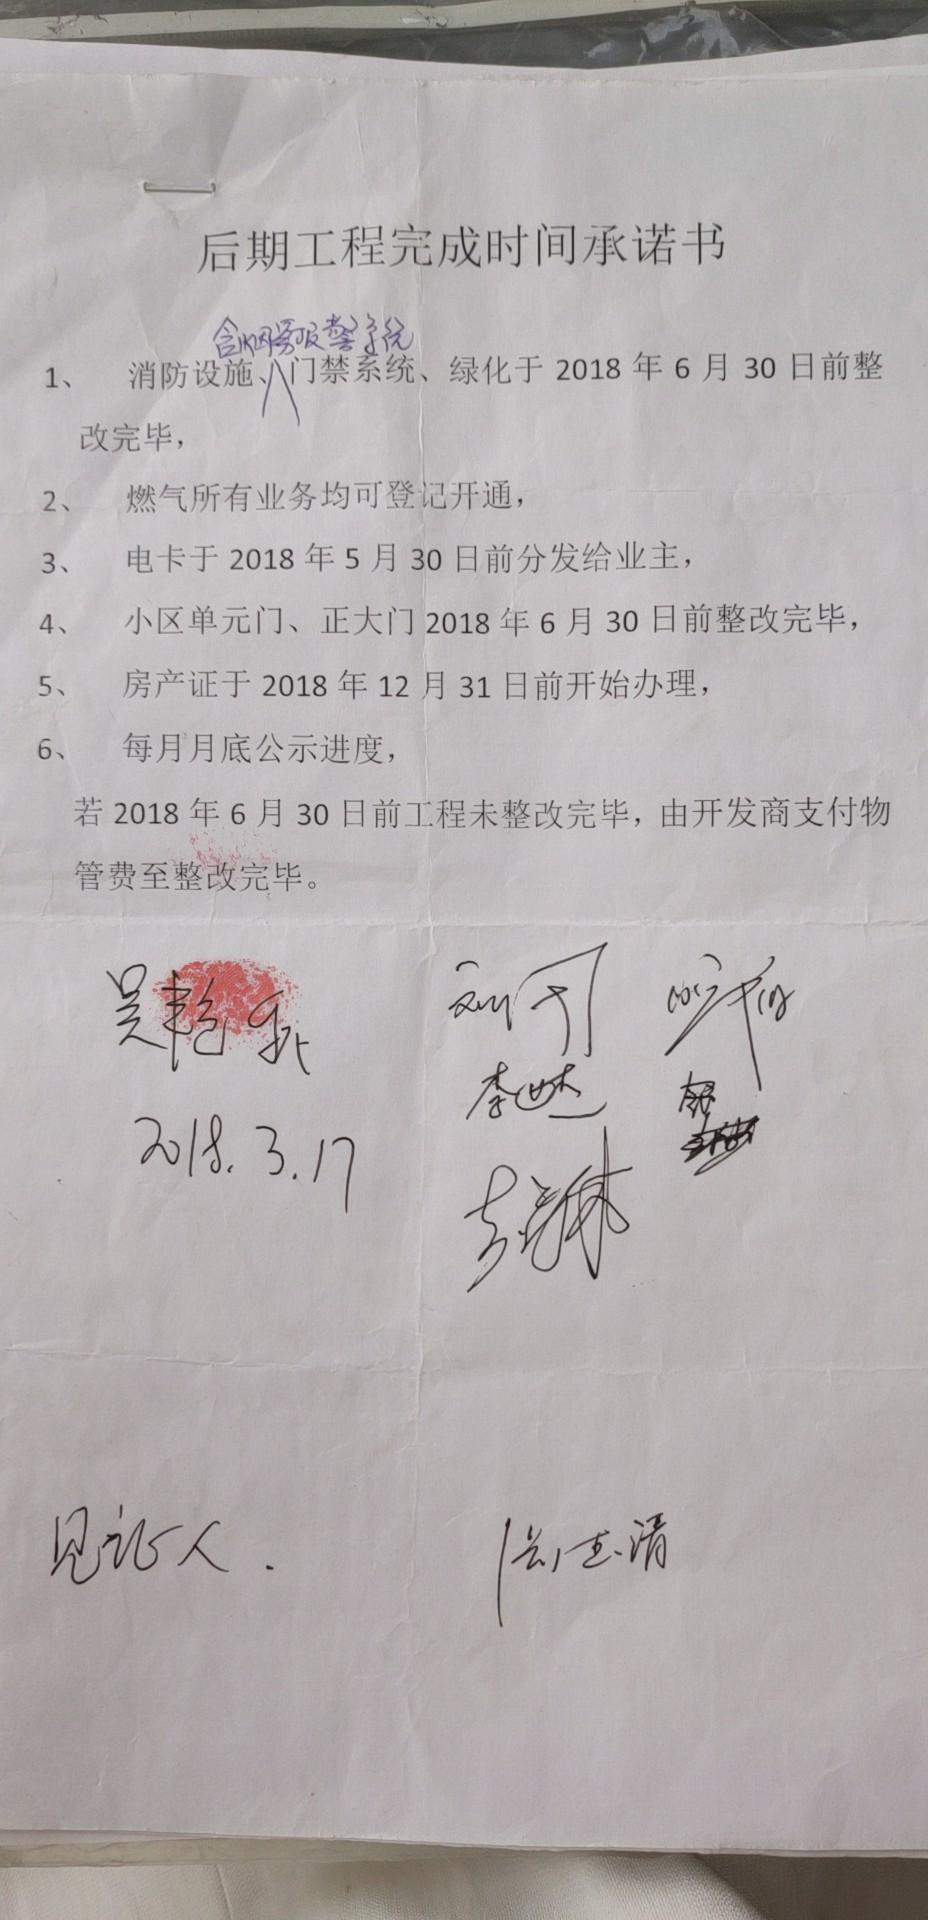 后期工程完成时间承诺书
含烟雾报警系统
1、 消防设施、门禁系统、绿化于 2018 年 6 月 30 日前整
改完毕，
2、 燃气所有业务均可登记开通，
3、 电卡于 2018 年 5 月 30 日前分发给业主，
4、 小区单元门、正大门 2018 年 6 月 30 日前整改完毕，
5、 房产证于 2018 年 12 月 31 日前开始办理，
6、 每月月底公示进度，
若 2018 年 6 月 30 日前工程未整改完毕，由开发商支付物
管费至整改完毕。
2018.3.17
见证人.